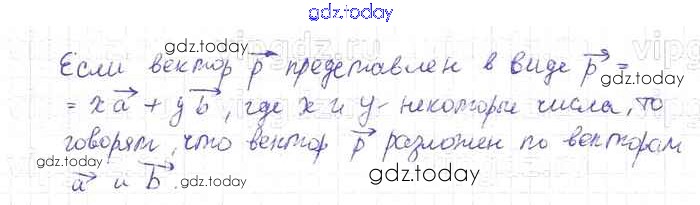 gdz.today
gdz.today
Если вектор p⃗ представлен в виде p⃗ =
gdz.today
= x a⃗ + y b⃗, где x и y - некоторые числа, то
говорят, что вектор p⃗ разложен по векторам
gdz.today
a⃗ и b⃗.
gdz.today
gdz.today